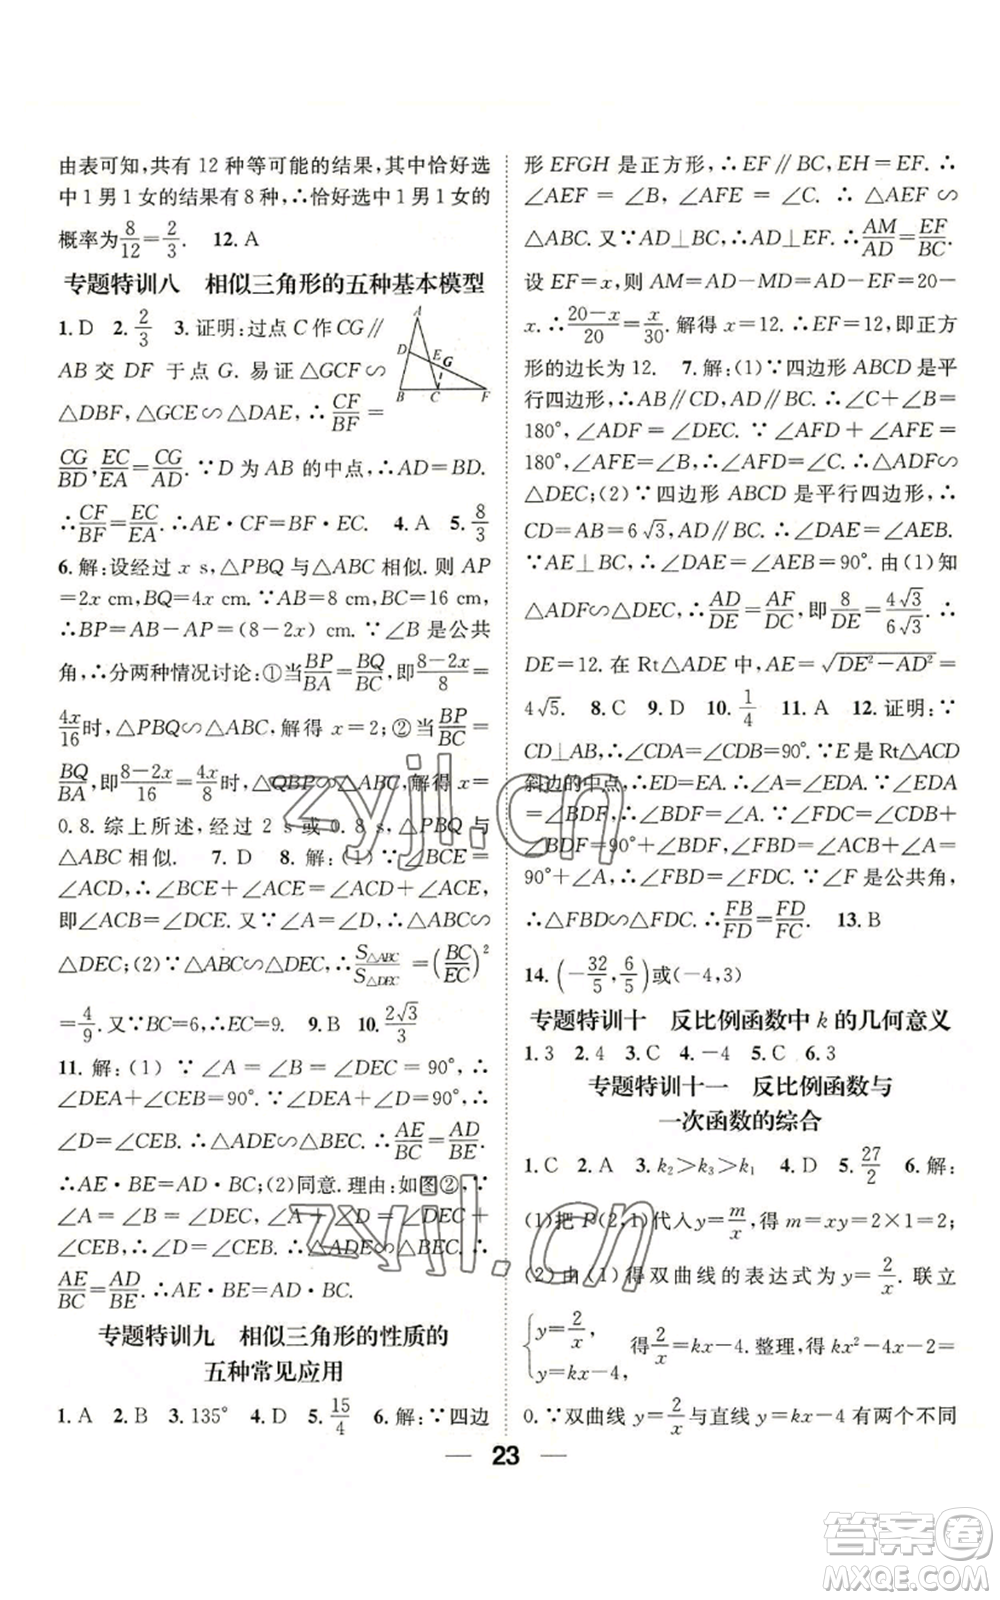 由表可知,共有 12 种等可能的结果,其中恰好选
中 1 男 1 女的结果有 8 种,∴恰好选中 1 男 1 女的
概率为8/12=2/3. 12. A
专题特训八 相似三角形的五种基本模型
1. D 2. 2/3 3. 证明:过点 C 作 CG∥
AB 交 DF 于点 G. 易证△CGF∽
△DBF,△GCE∽△DAE,∴CF/BF=
CG/BD,EC/EA=CG/AD. ∵D 为 AB 的中点,∴AD=BD.
∴CF/BF=EC/EA. ∴AE·CF=BF·EC. 4. A 5. 8/3
A
D
E
G
B
C
F
6. 解:设经过 x s,△PBQ 与△ABC 相似. 则 AP
=2x cm,BQ=4x cm. ∵AB=8 cm,BC=16 cm,
∴BP=AB-AP=(8-2x) cm. ∵∠B 是公共
角,∴分两种情况讨论:①当BP/BA=BQ/BC,即8-2x/8=
4x/16时,△PBQ∽△ABC,解得 x=2;②当BP/BC=
BQ/BA,即8-2x/16=4x/8时,△QBP∽△ABC,解得 x=
0.8. 综上所述,经过 2 s 或 0.8 s,△PBQ 与
△ABC 相似. 7. D 8. 解:(1)∵∠BCE=
∠ACD,∴∠BCE+∠ACE=∠ACD+∠ACE,
即∠ACB=∠DCE. 又∵∠A=∠D,∴△ABC∽
△DEC;(2)∵△ABC∽△DEC,∴S△ABC/S△DEC=(BC/EC)²
=4/9. 又∵BC=6,∴EC=9. 9. B 10. 2√3/3
11. 解:(1)∵∠A=∠B=∠DEC=90°,∴
∠DEA+∠CEB=90°,∠DEA+∠D=90°. ∴
∠D=∠CEB. ∴△ADE∽△BEC. ∴AE/BC=AD/BE.
∴AE·BE=AD·BC;(2)同意. 理由:如图②∵
∠A=∠B=∠DEC,∠A+∠D=∠DEC+
∠CEB,∴∠D=∠CEB. ∴△ADE∽△BEC. ∴
AE/BC=AD/BE. ∴AE·BE=AD·BC.
专题特训九 相似三角形的性质的
五种常见应用
1. A 2. B 3. 135° 4. D 5. 15/4 6. 解:∵四边
形 EFGH 是正方形,∴EF∥BC,EH=EF. ∴
∠AEF=∠B,∠AFE=∠C. ∴△AEF∽
△ABC. 又∵AD⊥BC,∴AM⊥EF. ∴AM/AD=EF/BC.
设 EF=x,则 AM=AD-MD=AD-EF=20-
x. ∴20-x/20=x/30. 解得 x=12. ∴EF=12,即正方
形的边长为 12. 7. 解:(1)∵四边形 ABCD 是平
行四边形,∴AB∥CD,AD∥BC. ∴∠C+∠B=
180°,∠ADF=∠DEC. ∵∠AFD+∠AFE=
180°,∠AFE=∠B,∴∠AFD=∠C. ∴△ADF∽
△DEC;(2)∵四边形 ABCD 是平行四边形,∴
CD=AB=6√3,AD∥BC. ∴∠DAE=∠AEB.
∵AE⊥BC,∴∠AEB=∠DAE=90°. 由(1)知
△ADF∽△DEC,∴AD/DE=AF/DC,即8/DE=4√3/6√3. ∴
DE=12. 在 Rt△ADE 中,AE=√DE²-AD²=
4√5. 8. C 9. D 10. 1/4 11. A 12. 证明:∵
CD⊥AB,∴∠CDA=∠CDB=90°. ∵E 是Rt△ACD
斜边的中点,∴ED=EA. ∴∠A=∠EDA. ∵∠EDA
=∠BDF,∴∠A=∠BDF. ∵∠FDC=∠CDB+
∠BDF=90°+∠BDF,∠FBD=∠ACB+∠A=
90°+∠A,∴∠FBD=∠FDC. ∵∠F 是公共角,
∴△FBD∽△FDC. ∴FB/FD=FD/FC. 13. B
14. (-32/5,6/5)或(-4,3)
专题特训十 反比例函数中 k 的几何意义
1. 3 2. 4 3. C 4. -4 5. C 6. 3
专题特训十一 反比例函数与
一次函数的综合
1. C 2. A 3. k₂>k₃>k₁ 4. D 5. 27/2 6. 解:
(1)把 P(2,1)代入 y=m/x,得 m=xy=2×1=2;
(2)由(1)得双曲线的表达式为 y=2/x. 联立
{y=2/x, y=kx-4, 得2/x=kx-4. 整理,得 kx²-4x-2=
0. ∵双曲线 y=2/x与直线 y=kx-4 有两个不同
23
zyjl.cn
zyjl.cn
答案圈
MXQE.COM